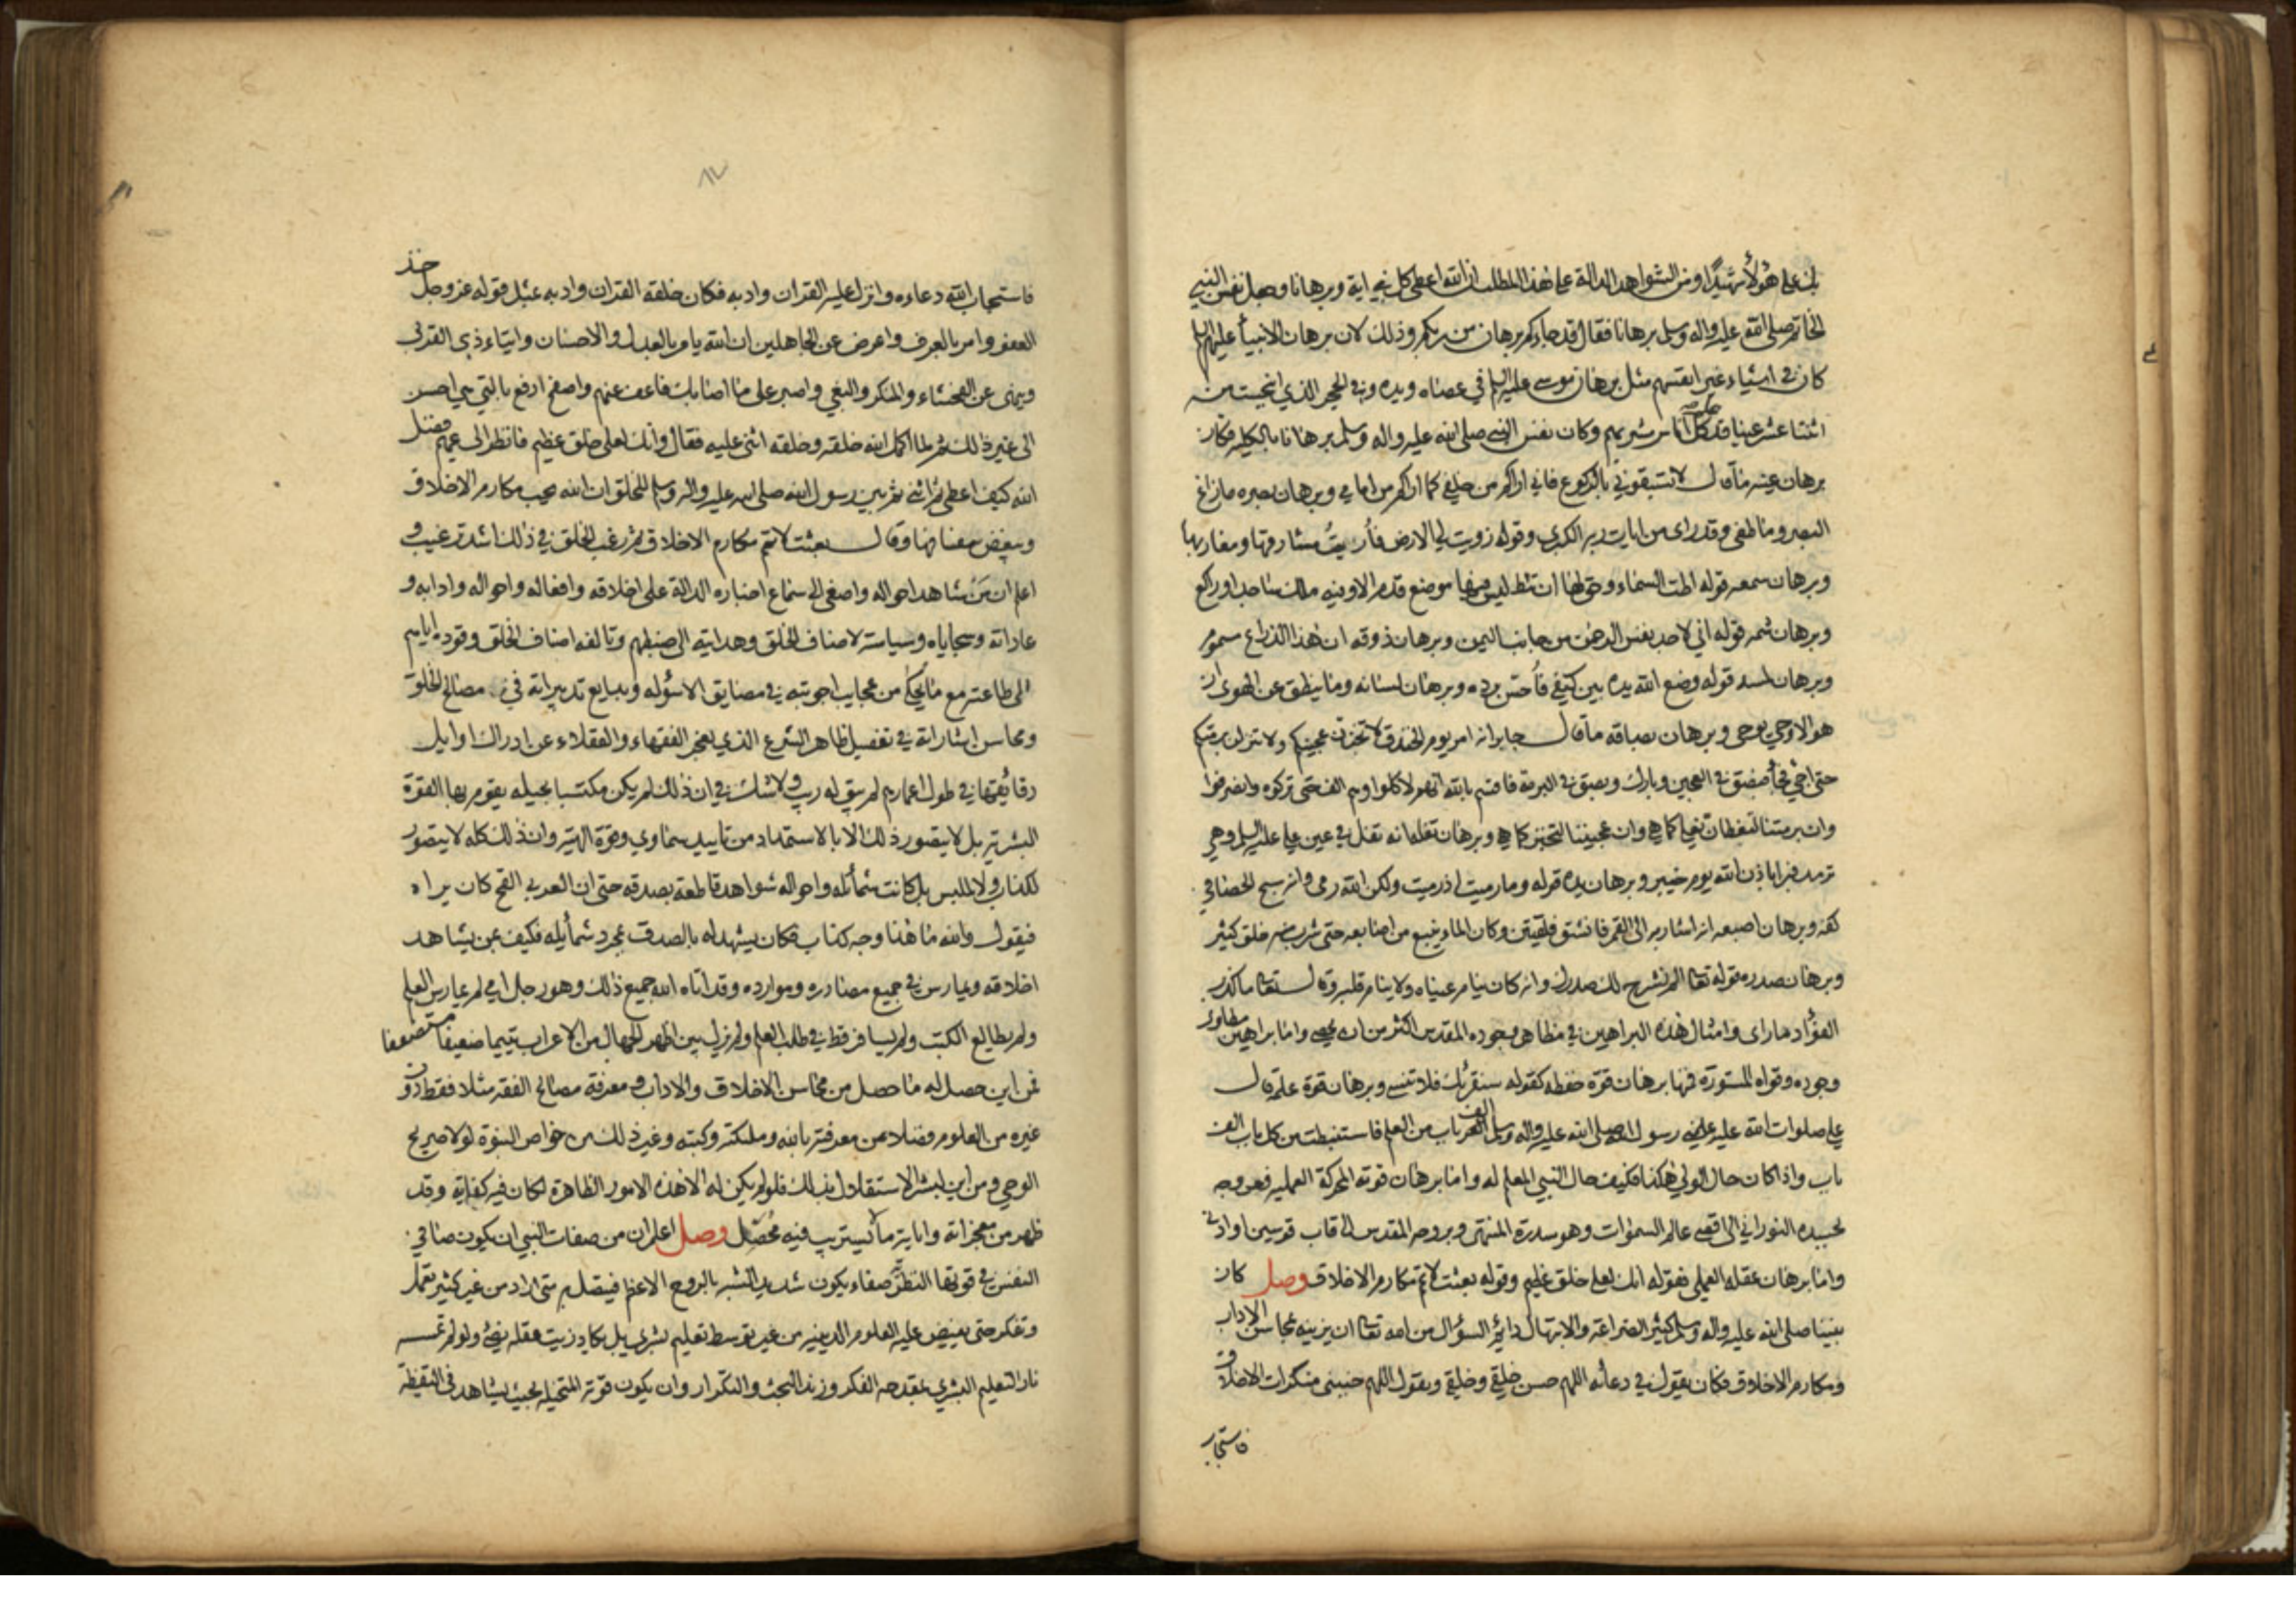 بك على هؤلاء شهيدا ومن الشواهد الدالة على هذا المطلب ان الله اعطى كل نبي اية وبرهانا وجعل نفس النبي
الخاتم صلى الله عليه واله وسلم برهانا فقال قد جاءكم برهان من ربكم وذلك لان برهان الانبيأ عليهم السلم
كان في اشياء غير انفسهم مثل برهان موسى عليه السلم في عصاه ويده وفي الحجر الذي انبجست منه
اثنتا عشر عينا قد علم كل اناس مشربهم وكان نفس النبي صلى الله عليه واله وسلم برهانا بالكلية فكان
برهان عينه ما قال لا تسبقوني بالركوع فاني اراكم من خلفي كما اراكم من امامي وبرهان بصره ما زاغ
البصر وما طغى وقد راى من ايات ربه الكبرى وقوله زويت لي الارض فأريتُ مشارقها ومغاربها
وبرهان سمعه قوله اطت السماء وحق لها ان تئط ليس فيها موضع قدم الا وفيه ملك ساجد او راكع
وبرهان شمه قوله اني لاجد نفس الرحمن من جانب اليمن وبرهان ذوقه ان هذا الذراع مسموم
وبرهان لمسه قوله وضع الله يده بين كتفي فأحس برده وبرهان لسانه وما ينطق عن الهوى ان
هو الا وحي يوحى وبرهان بصاقه ما قال جابر انه امر يوم الخندق لا تخبزن عجينكم ولا تنزلن برمتكم
حتى اجئ فجأ فبصق في العجين وبارك وبصق في البرمة فاقسم بالله انهم لاكلوا وهم الف حتى تركوه وانصرفوا
وان برمتنا لتغط كما هي وان عجيننا لتخبز كما هو وبرهان تفله انه تفل في عين علي عليه السلم وهي
ترمد فبرا باذن الله يوم خيبر وبرهان يده قوله وما رميت اذ رميت ولكن الله رمى وانه سبح الحصا في
كفه وبرهان اصبعه انه اشار به الى القمر فانشق فلقتين وكان الماء ينبع من اصابعه حتى شرب منه خلق كثير
وبرهان صدره قوله تعالى الم نشرح لك صدرك وانه كان ينام عيناه ولا ينام قلبه وقال تعالى ما كذب
الفؤاد ما راى وامثال هذه البراهين في مظاهر وجوده المقدس اكثر من ان يحصى واما براهين مطاوى
وجوده وقواه المستورة فمنها برهان قوة حفظه كقوله سنقرئك فلا تنسى وبرهان قوة علمه قال
علي صلوات الله عليه علمني رسول الله صلى الله عليه واله وسلم الف باب من العلم فاستنبطت من كل باب الف
باب واذا كان حال الولي هكذا فكيف حال النبي المعلم له واما برهان قوته المحركة العملية فعروجه
بجسده النوراني الى اقصى عالم السموات وهو سدرة المنتهى وبروحه المقدس الى قاب قوسين او ادنى
واما برهان عقله العملي فقوله انك لعلى خلق عظيم وقوله بعثت لاتمم مكارم الاخلاق وصل كان
نبينا صلى الله عليه واله وسلم كثير الضراعة والابتهال دائم السؤال من الله تعالى ان يزينه بمحاسن الاداب
ومكارم الاخلاق فكان يقول في دعائه اللهم حسن خلقي وخلقي ويقول اللهم جنبني منكرات الاخلاق
فاستجاب
فاستجاب الله دعاءه وانزل عليه القران وادبه فكان خلقه القران وادبه بمثل قوله عز وجل خذ
العفو وامر بالعرف واعرض عن الجاهلين ان الله يامر بالعدل والاحسان وايتاء ذي القربى
وينهى عن الفحشاء والمنكر والبغي واصبر على ما اصابك فاعف عنهم واصفح ادفع بالتي هي احسن
الى غير ذلك ثم لما اكمل الله خلقه وخلقه اثنى عليه فقال وانك لعلى خلق عظيم فانظر الى عميم فضل
الله كيف اعطى ثم اثنى ثم بين رسول الله صلى الله عليه واله وسلم للخلق ان الله يحب مكارم الاخلاق
ويبغض سفسافها وقال بعثت لاتمم مكارم الاخلاق ثم رغب الخلق في ذلك اشد ترغيب و
اعلم ان مَن شاهد احواله واصغى الى سماع اخباره الدالة على اخلاقه وافعاله واحواله وادابه و
عاداته وسجاياه وسياسته لاصناف الخلق وهدايته الى ضبطهم وتالفه اصناف الخلق وقوده اياهم
الى طاعته مع ما يحكى من عجايب اجوبته في مضايق الاسؤله وبدايع تدبيراته في مصالح الخلق
ومحاسن اشاراته في تفصيل ظاهر الشرع الذي يعجز الفقهاء والعقلاء عن ادراك اوايل
دقائقها في طول اعمارهم لم يبق له ريب ولا شك في ان ذلك لم يكن مكتسبا بحيله يقوم بها القوة
البشرية بل لا يتصور ذلك الا بالاستمداد من تاييد سماوي وقوة الهية وان ذلك كله لا يتصور
لكذاب ولا لملبس بل كانت شمائله واحواله شواهد قاطعة بصدقه حتى ان العربي القح كان يراه
فيقول والله ما هذا وجه كذاب فكان يشهد له بالصدق بمجرد شمأيله فكيف بمن يشاهد
اخلاقه ويمارس في جميع مصادره وموارده وقد اتاه الله جميع ذلك وهو رجل امي لم يمارس العلم
ولم يطالع الكتب ولم يسافر قط في طلب العلم ولم يزل بين اظهر الجهال من الاعراب يتيما ضعيفا مستضعفا
فمن اين حصل له ما حصل من محاسن الاخلاق والاداب ومعرفة مصالح الفقه مثلا فقط دون
غيره من العلوم فضلا عن معرفته بالله وملئكته وكتبه وغير ذلك من خواص النبوة لولا صريح
الوحي ومن اين لبشر الاستقلال بذلك فلو لم يكن له الا هذه الامور الظاهرة لكان فيه كفاية وقد
ظهر من معجزاته واياته ما لا يستريب فيه مُحَصِّل وصل اعلم ان من صفات النبي ان يكون صافي
النفس في قوتها النظرية صفاء يكون شديد الشبه بالروح الاعظم فيتصل به متى اراد من غير كثير تعمل
وتفكر حتى يفيض عليه العلوم اللدنية من غير توسط تعليم بشري بل يكاد زيت عقله يضئ ولو لم تمسسه
نار التعليم البشري بمقدحه الفكر وزند البحث والتكرار وان يكون قوته المتخيله بحيث يشاهد في اليقظة